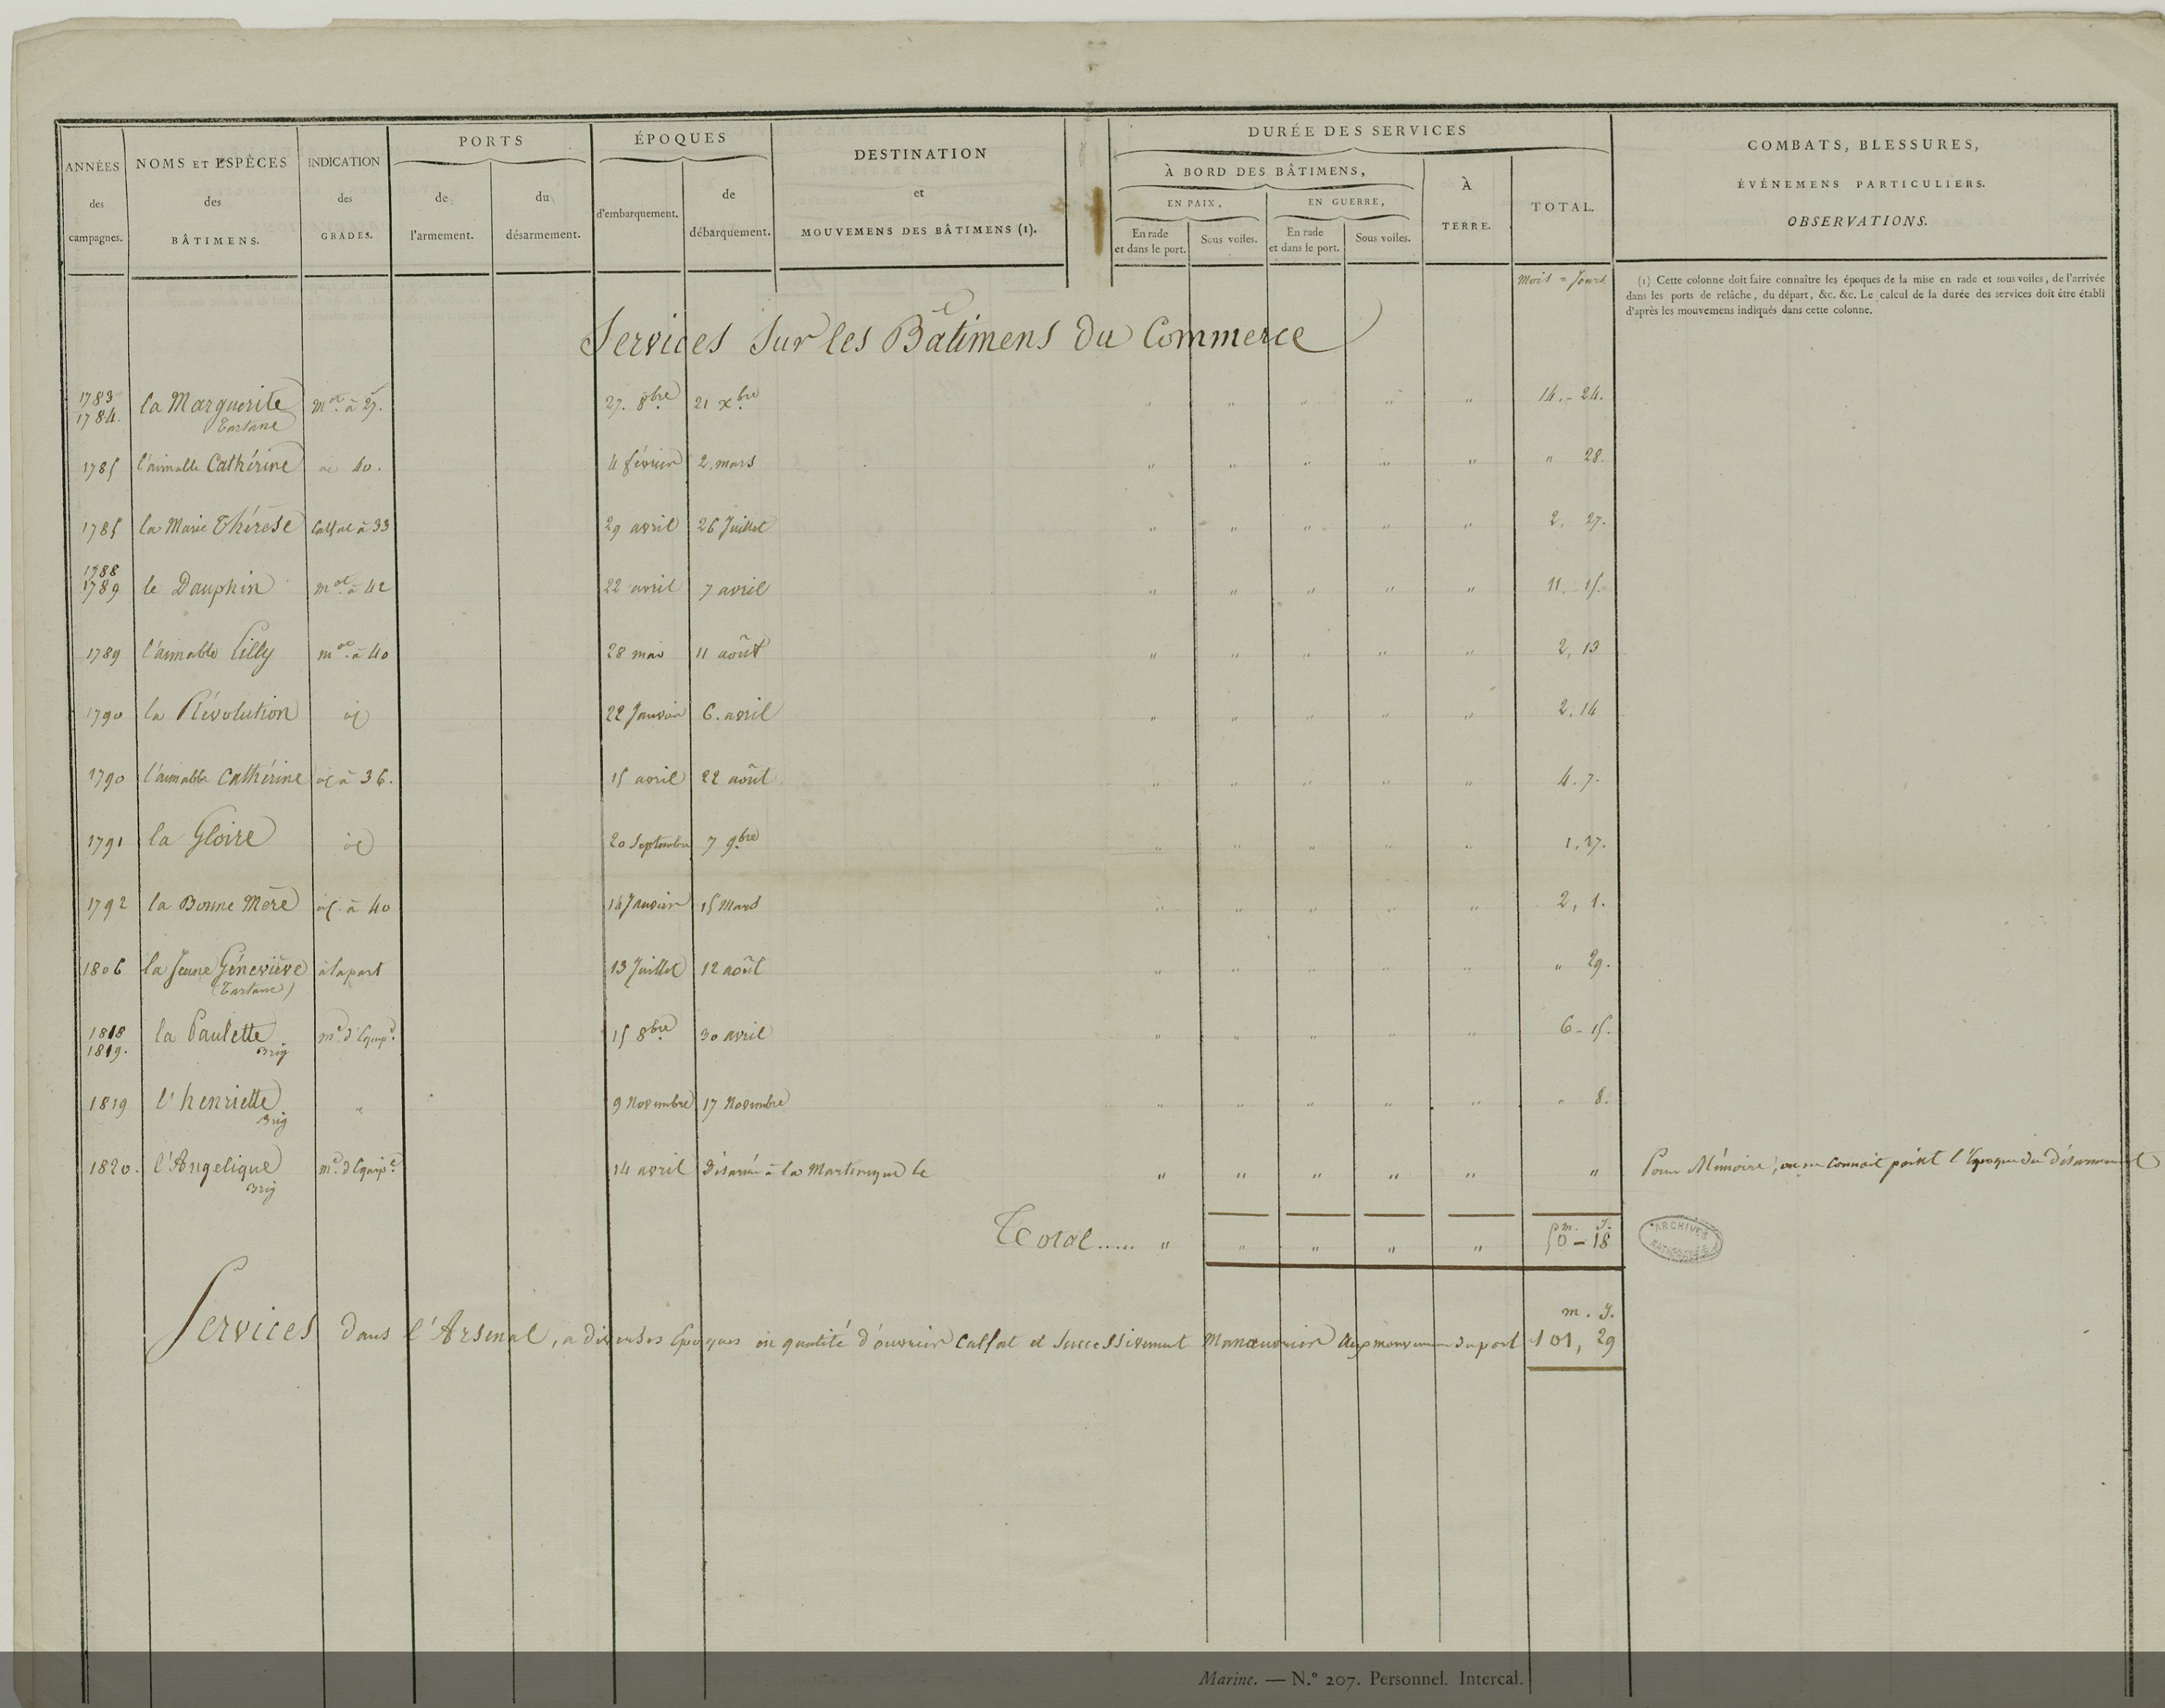 ANNÉES des campagnes.
NOMS ET ESPÈCES des BÂTIMENS.
INDICATION des GRADES.
PORTS
de l'armement.
du désarmement.
ÉPOQUES
d'embarquement.
de débarquement.
DESTINATION et MOUVEMENS DES BÂTIMENS (1).
DURÉE DES SERVICES
À BORD DES BÂTIMENS,
EN PAIX,
En rade et dans le port.
Sous voiles.
EN GUERRE,
En rade et dans le port.
Sous voiles.
À TERRE.
TOTAL.
COMBATS, BLESSURES,
ÉVÉNEMENS PARTICULIERS.
OBSERVATIONS.
Mois = Jours
(1) Cette colonne doit faire connaître les époques de la mise en rade et sous voiles, de l'arrivée
dans les ports de relâche, du départ, &c. &c. Le calcul de la durée des services doit être établi
d'après les mouvemens indiqués dans cette colonne.
Services Sur les Bâtimens du Commerce
1783 1784. la Marguerite Tartane m.ot à 27. 27. 8bre 21 xbre " " " " " 14. - 24.
1785 l'aimable Cathérine 40. 4 février 2. mars " " " " " " 28.
1785 la Marie Thérèse Calfat à 33 29 avril 26 Juillet " " " " " 2. 27.
1788 1789 le Dauphin m.ot à 42 22 avril 7 avril " " " " " 11. 15.
1789 l'aimable Lilly m.ot à 40 28 mai 11 août " " " " " 2, 13
1790 la Révolution id 22 Janvier 6. avril " " " " " 2, 14
1790 l'aimable Cathérine id à 36. 15 avril 22 août " " " " " 4. 7.
1791 la Gloire id 20 Septembre 7 9bre " " " " " 1, 27.
1792 la Bonne Mère id. à 40 14 Janvier 15 Mars " " " " " 2, 1.
1806 la Jeune Géneviève (Tartane) à la part 13 Juillet 12 août " " " " " " 29.
1818 1819. la Paulette Brig m.e d'Equip.e 15 8bre 30 avril " " " " " 6 - 15.
1819 l'henriette Brig " 9 Novembre 17 Novembre " " " " " " 8.
1820. l'Angelique Brig m.e d'Equip.e 14 avril Désarmé à la Martinique le " " " " " " Pour Mémoire, on ne connait point l'Epoque du Désarmement
m. J.
Total..... " " " " " 50 - 18
ARCHIVES NATIONALES
m. J.
Services dans l'Arsenal, a diverses Epoques en qualité d'ouvrier Calfat et Successivement Manœuvrier aux mouvemens du port 101, 29
Marine. — N.º 207. Personnel. Intercal.